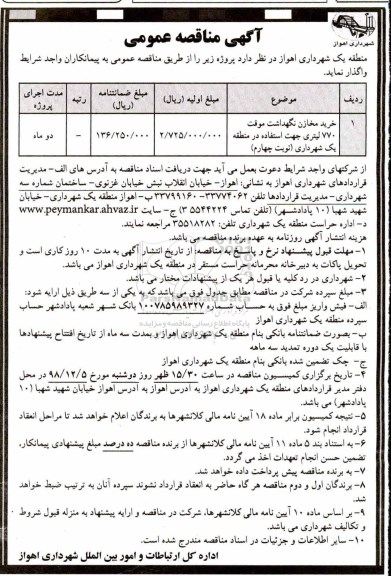 آگهی مناقصه عمومی
شهرداری اهواز
منطقه یک شهرداری اهواز در نظر دارد پروژه زیر را از طریق مناقصه عمومی به پیمانکاران واجد شرایط
واگذار نماید.
ردیف موضوع مبلغ اولیه (ریال) مبلغ ضمانتنامه (ریال) رتبه مدت اجرای پروژه
۱ خرید مخازن نگهداشت موقت ۷۷۰ لیتری جهت استفاده در منطقه یک شهرداری (نوبت چهارم) ۲/۷۲۵/۰۰۰/۰۰۰ ۱۳۶/۲۵۰/۰۰۰ - دو ماه
از شرکتهای واجد شرایط دعوت بعمل می آید جهت دریافت اسناد مناقصه به آدرس های الف- مدیریت
قراردادهای شهرداری اهواز به نشانی: اهواز- خیابان انقلاب نبش خیابان غزنوی- ساختمان شماره سه
شهرداری- مدیریت قراردادها تلفن ۳۳۷۷۴۰۶۲- ۳۳۷۹۹۱۶۰ ب- اهواز منطقه یک شهرداری- خیابان
شهید شهبا (۱۰ پادادشهر) (تلفن تماس ۵۵۴۴۲۲۴ ۳) ج- سایت www.peymankar.ahvaz.ir
د- اداره حراست منطقه یک شهرداری تلفن: ۳۵۵۱۸۲۸۲ مراجعه نمایند.
هزینه انتشار آگهی روزنامه به عهده برنده مناقصه می باشد.
۱- مهلت قبول پیشنهاد نرخ و پاسخ به مناقصه: از تاریخ انتشار آگهی به مدت ۱۰ روز کاری است و
تحویل پاکات به دبیرخانه محرمانه حراست مستقر در منطقه یک شهرداری اهواز می باشد.
۲- شهرداری در رد کلیه یا قبول هر یک از پیشنهادات مختار می باشد.
۳- مبلغ سپرده شرکت در مناقصه مطابق جدول فوق می باشد که به یکی از سه طریق ذیل ارایه شود:
الف- فیش واریز مبلغ فوق به حساب شماره ۱۰۰۷۸۵۹۸۹۳۲۷ بانک شهر شعبه پادادشهر حساب
سپرده منطقه یک شهرداری اهواز
ب- بصورت ضمانتنامه بانکی بنام منطقه یک شهرداری اهواز و بمدت سه ماه از تاریخ افتتاح پیشنهادها
با قابلیت یک دوره تمدید سه ماهه
ج- چک تضمین شده بانکی بنام منطقه یک شهرداری اهواز
۴- تاریخ برگزاری کمیسیون مناقصه در ساعت ۱۵/۳۰ ظهر روز دوشنبه مورخ ۹۸/۱۲/۵ در محل
دفتر مدیر قراردادهای منطقه یک شهرداری اهواز به آدرس اهواز به آدرس اهواز خیابان شهید شهبا (۱۰
پادادشهر) می باشد.
۵- نتیجه کمیسیون برابر ماده ۱۸ آیین نامه مالی کلانشهرها به برندگان اعلام خواهد شد تا مراحل انعقاد
قرارداد انجام شود.
۶- به استناد بند ۵ ماده ۱۱ آیین نامه مالی کلانشهرها از برنده مناقصه ده درصد مبلغ پیشنهادی پیمانکار،
تضمین حسن انجام تعهدات اخذ می گردد.
۷- به برنده مناقصه پیش پرداخت داده خواهد شد.
۸- برندگان اول و دوم مناقصه هر گاه حاضر به انعقاد قرارداد نشوند سپرده آنان به ترتیب ضبط خواهد
شد.
۹- بر اساس ماده ۱۰ آیین نامه مالی کلانشهرها، شرکت در مناقصه و ارایه پیشنهاد به منزله قبول شروط
و تکالیف شهرداری می باشد.
۱۰- سایر اطلاعات و جزئیات در اسناد مناقصه مندرج شده است.
اداره کل ارتباطات و امور بین الملل شهرداری اهواز